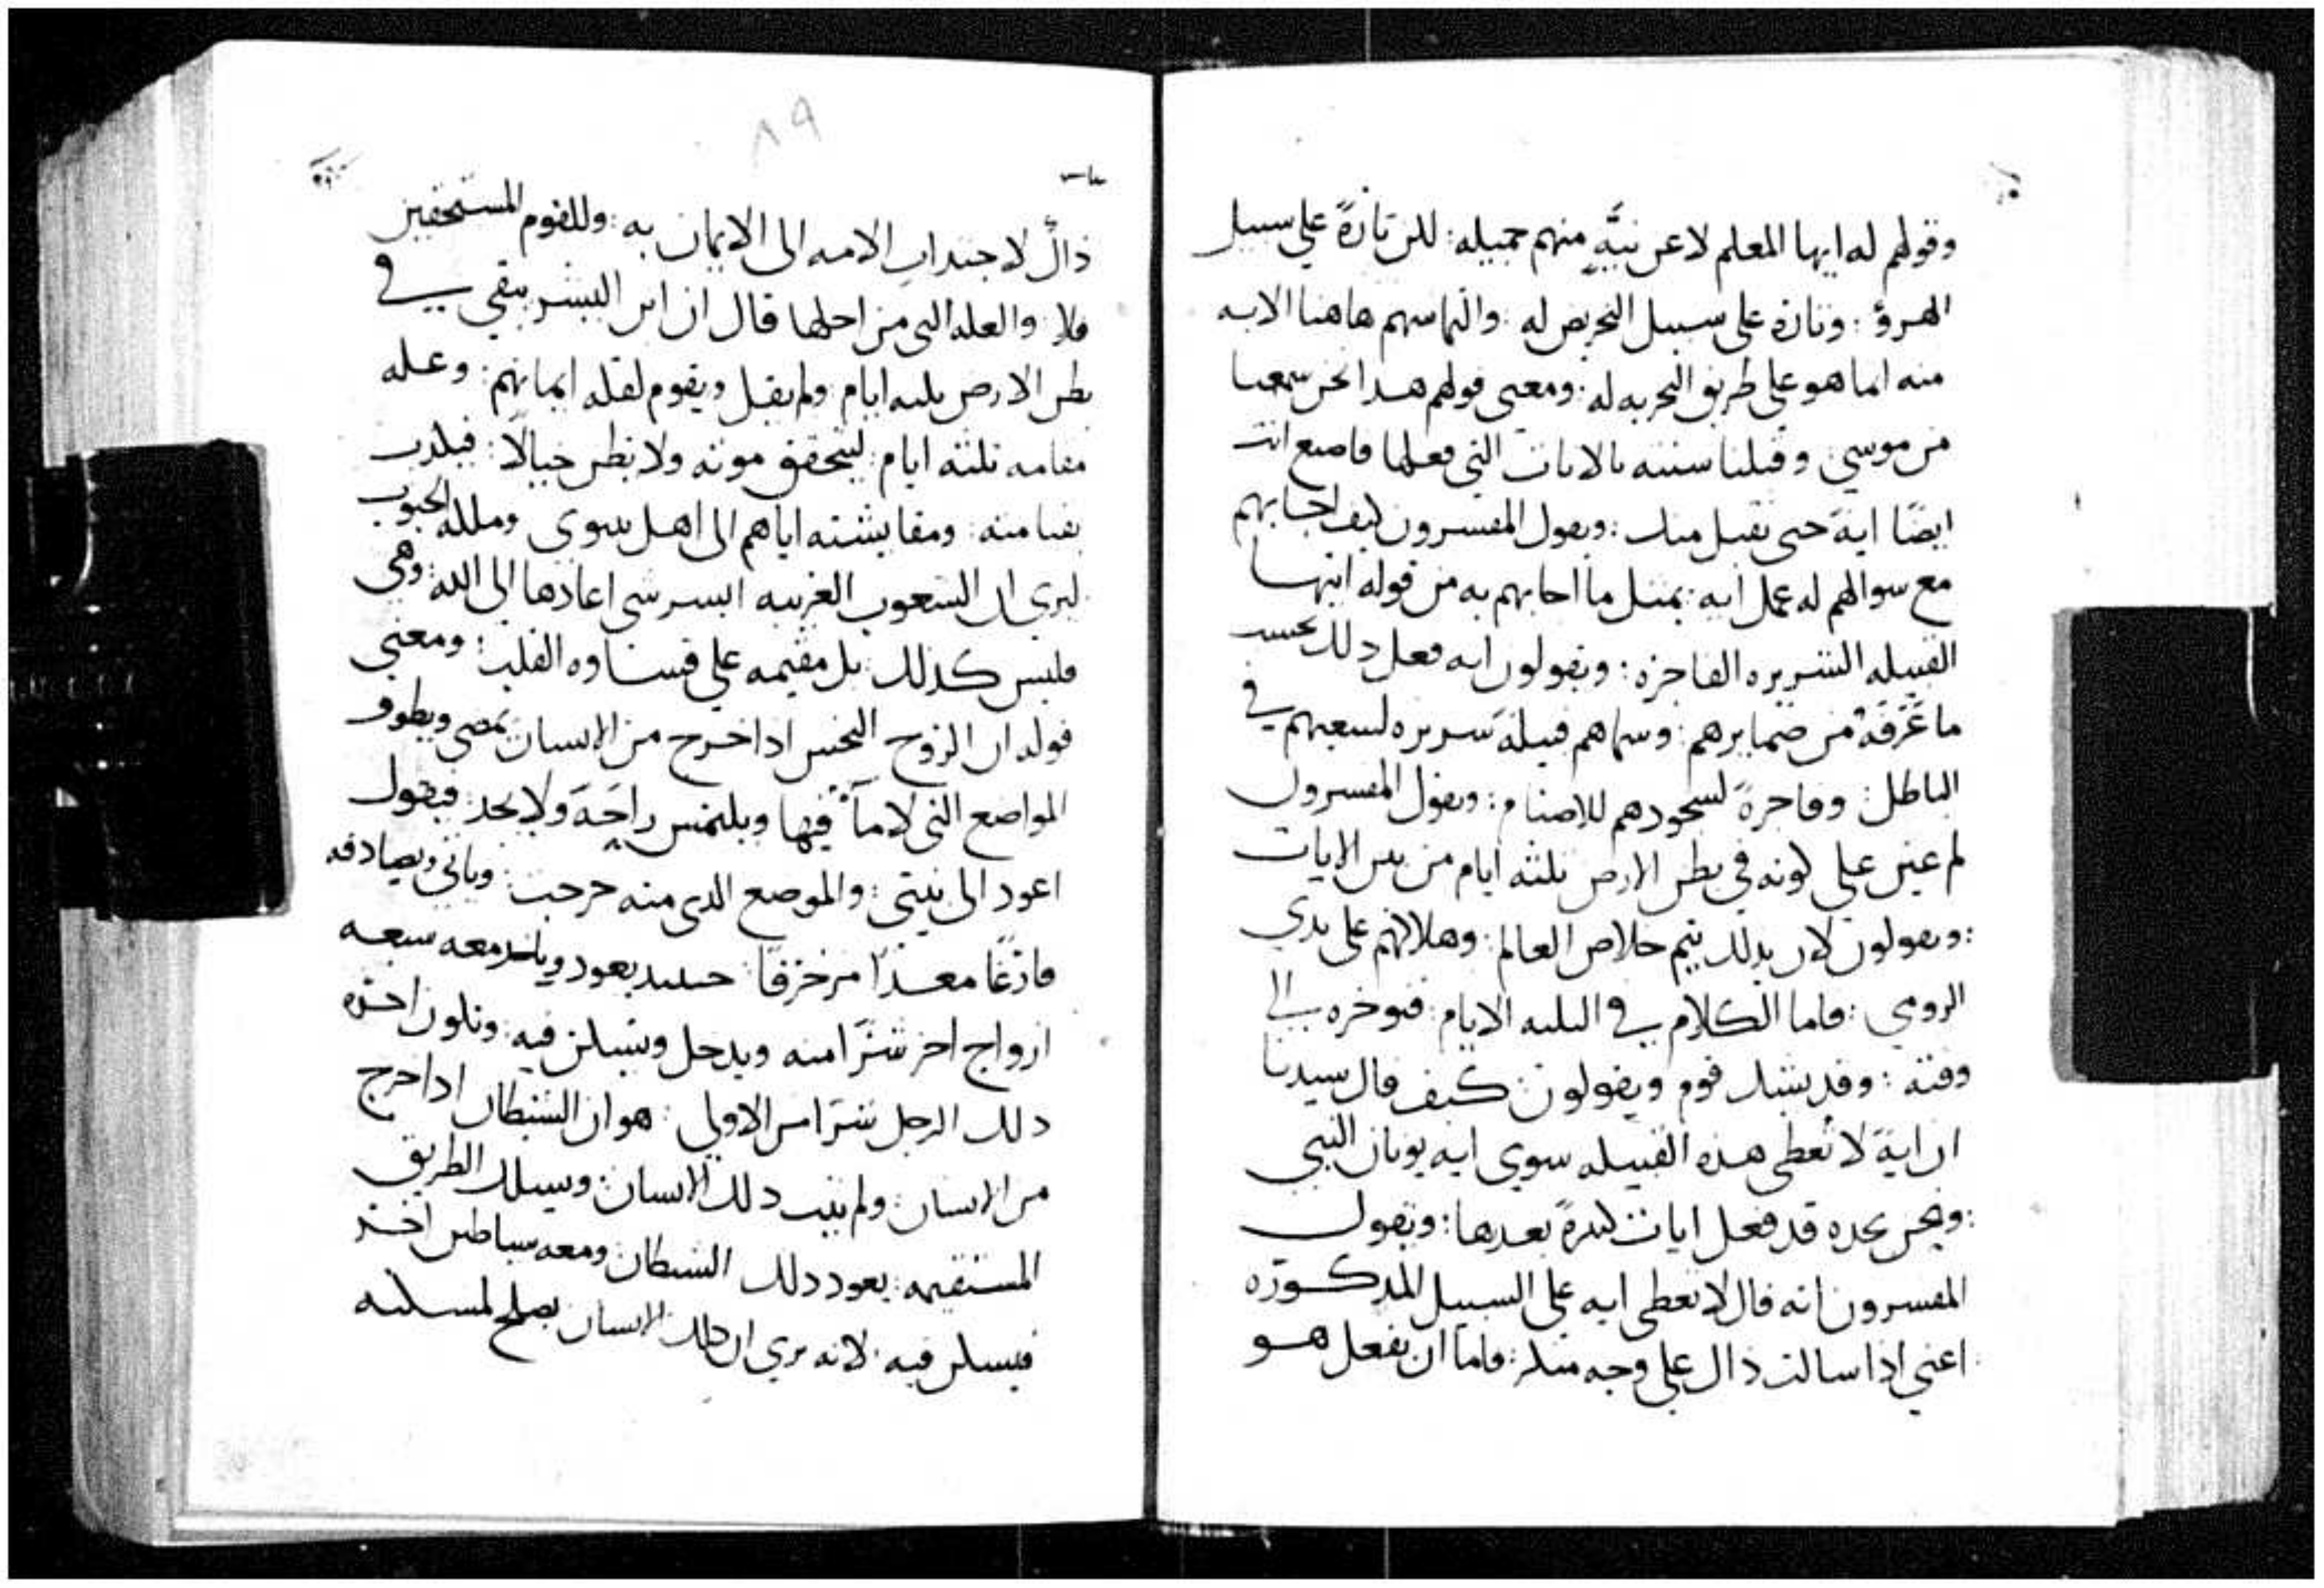 وقولهم له ايها المعلم لا عن نيةٍ منهم جميله : لكن تارةً علي سبيل
الهزؤ : وتاره على سبيل التحريص له : والتماسهم هاهنا الايه
منه انما هو علي طريق التجربه له : ومعنى قولهم هذا نحن سمعنا
من موسي وقبلنا سننه بالايات التي فعلها فاصنع انت
ايضًا ايةً حتى نقبل منك : ويقول المفسرون كيف اجابهم
مع سوالهم له عمل ايه : بمثل ما اجابهم به من قوله ايتها
القبيله الشريره الفاجره : ويقولون انه فعل ذلك بحسب
ما عَرَفَهُ من ضمايرهم : وسماهم قبيلةً شريره لسعيهم في
الباطل : وفاجرةً لسجودهم للاصنام : ويقول المفسرون
لم عين علي كونه في بطن الارض ثلثه ايام من بين الايات
: ويقولون لان بذلك يتم خلاص العالم : وهلاكهم على يدي
الرومي : فاما الكلام في الثلثه الايام : فنوخره الي
وقته : وقد يشك قوم ويقولون : كيف قال سيدنا
ان ايةً لا تُعطي هذه القبيله سوي ايه يونان النبي
: ونحن نجده قد فعل ايات كثيرةً بعدها : ويقول
المفسرون انه قال لا تعطى ايه على السبيل المذكوره
اعني اذا سالت ذاك على وجه منكر : فاما ان يفعل هو
٨٩
ذاك لاجتداب الامه الى الايمان به : وللقوم المستحقين
فلا : والعله التي من اجلها قال ان ابن البشر يبقي في
بطن الارض ثلثه ايام ولم يقل ويقوم لقله ايمانهم : وعله
مقامه ثلثه ايام : ليتحقق موته ولا يظن خيالًا : فيكذب
بقيامته : ومقايسته اياهم الى اهل نينوي وملكه الجنوب
ليري ان الشعوب الغريبه ايسر شي اعادها الى الله : وهي
فليس كذلك : بل مقيمه علي قساوه القلب : ومعني
قوله ان الروح النجس اذا خرج من الانسان يمضي ويطوف
المواضع التي لا مآ فيها ويلتمس راحَةً ولا يجد : فيقول
اعود الى بيتي : والموضع الذي منه خرجت : وياتي ويصادفه
فارغًا معدًا مزخرفًا : حينيذ يعود وياخذ معه سبعه
ارواح اخر شرًا منه ويدخل ويسكن فيه : وتكون اخره
ذلك الرجل شرًا من الاولي : هو ان الشيطان اذا خرج
من الانسان : ولم يتب ذلك الانسان : ويسلك الطريق
المستقيمه : يعود ذلك الشيطان ومعه شياطين اخر
فيسكن فيه : لانه يري ان ذلك الانسان يصلح لمسكنه